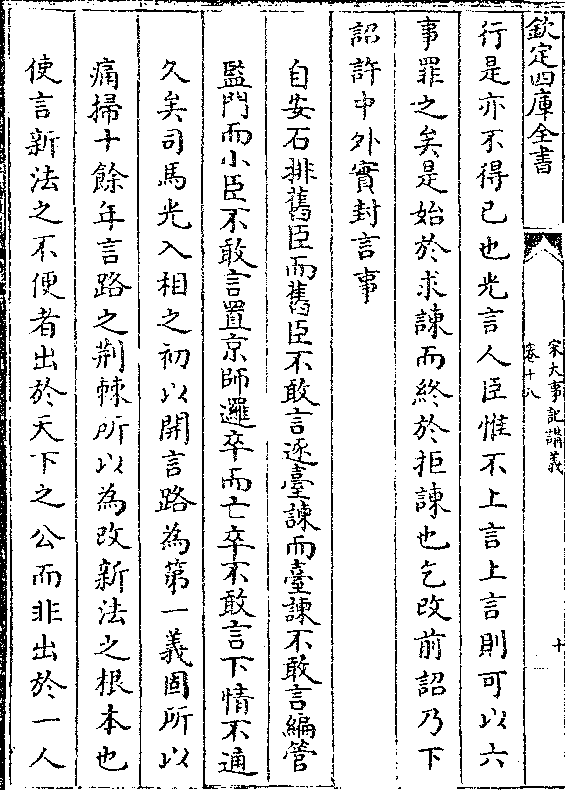 欽定四庫全書
宋大事記講義
卷十八
十
行是亦不得已也光言人臣惟不上言上言則可以六
事罪之矣是始於求諫而終於拒諫也乞改前詔乃下
詔許中外實封言事
自安石排舊臣而舊臣不敢言逐臺諫而臺諫不敢言編管
監門而小臣不敢言置京師邏卒而亡卒不敢言下情不通
久矣司馬光入相之初以開言路為第一義固所以
痛掃十餘年言路之荆棘所以為改新法之根本也
使言新法之不便者出於天下之公而非出於一人